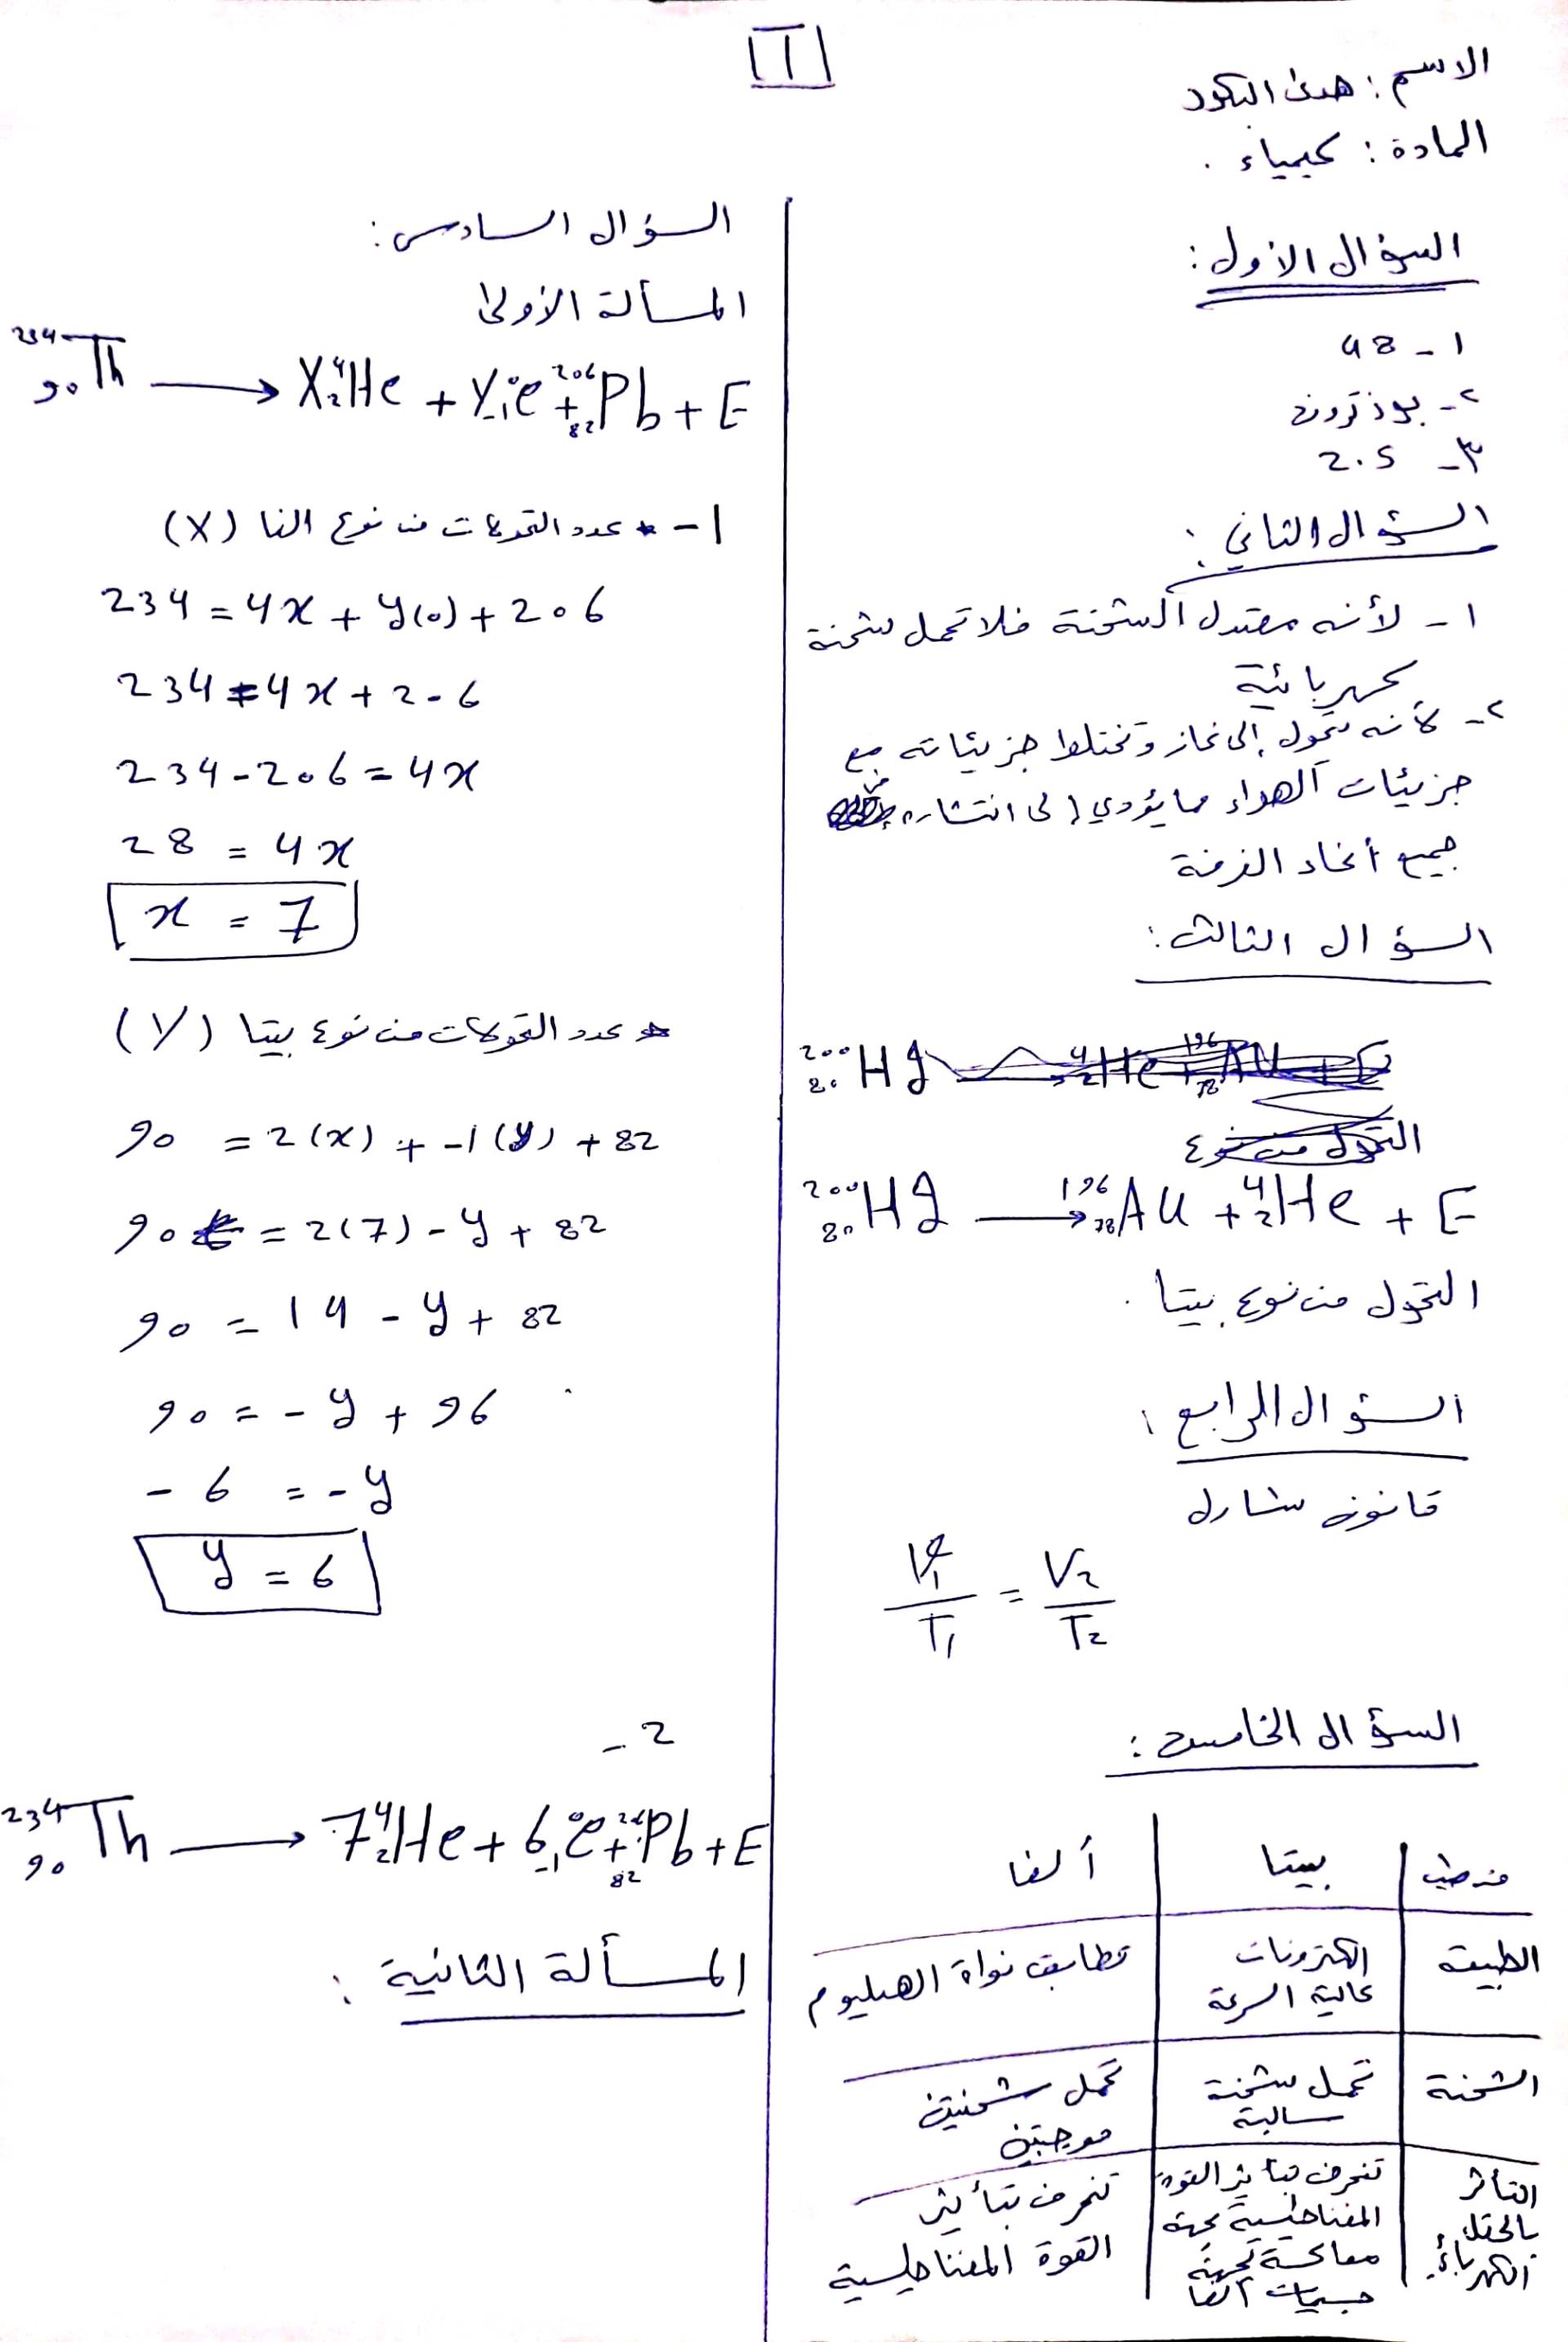 1
الاسم : هدى البكود
المادة : كيمياء .
السؤال الأول :
١ - 48
٢ - بوذترون
٣ - 2.5
السؤال الثاني :
١ - لأنه معتدل الشحنة فلا تحمل شحنة
كهربائية
٢ - لأنه تحول إلى غاز وتختلط جزيئاته مع
جزيئات الهواء مما يؤدي إلى انتشاره في
جميع أنحاء الغرفة
السؤال الثالث :
²⁰⁰₈₀Hg ⁴₂He + ¹⁹⁶₇₈Au + E
التحول من نوع
²⁰⁰₈₀Hg → ¹⁹⁶₇₈Au + ⁴₂He + E
التحول من نوع بيتا .
السؤال الرابع :
قانون شارل
V₁/T₁ = V₂/T₂
السؤال الخامس :
من حيث | بيتا | ألفا
الطبيعة | الكترونات عالية السرعة | تطابق نواة الهيليوم
الشحنة | تحمل شحنة سالبة | تحمل شحنتين موجبتين
التأثر بالحقل الكهربائي | تنحرف بتأثير القوة المغناطيسية بجهة معاكسة لجهة جسيمات ألفا | تنحرف بتأثير القوة المغناطيسية
السؤال السادس :
المسألة الأولى
²³⁴₉₀Th → X⁴₂He + Y⁰₋₁e + ²⁰⁶₈₂Pb + E
1 - * عدد التحولات من نوع الفا (X)
234 = 4x + y(0) + 206
234 = 4x + 206
234 - 206 = 4x
28 = 4x
x = 7
* عدد التحولات من نوع بيتا (Y)
90 = 2(x) + -1(y) + 82
90 = 2(7) - y + 82
90 = 14 - y + 82
90 = - y + 96
- 6 = - y
y = 6
2 -
²³⁴₉₀Th → 7⁴₂He + 6⁰₋₁e + ²⁰⁶₈₂Pb + E
المسألة الثانية :